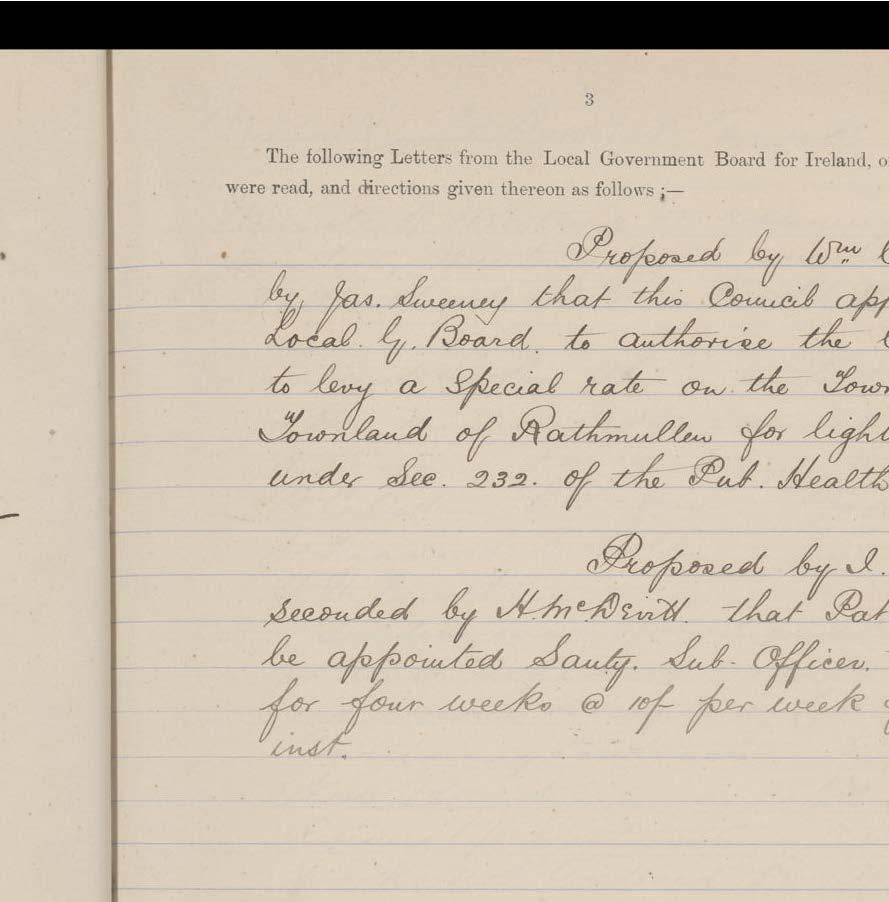 3
The following Letters from the Local Government Board for Ireland, o
were read, and directions given thereon as follows ;—
Proposed by Wm
by Jas. Sweeney that this Council app
Local. G. Board. to authorise the
to levy a Special rate on the Town
Townland of Rathmullen for light
under Sec. 232. of the Pub. Health
Proposed by J.
seconded by H. McDevitt. that Pat
be appointed Santy. Sub-Officer.
for four weeks @ 10/- per week
inst.